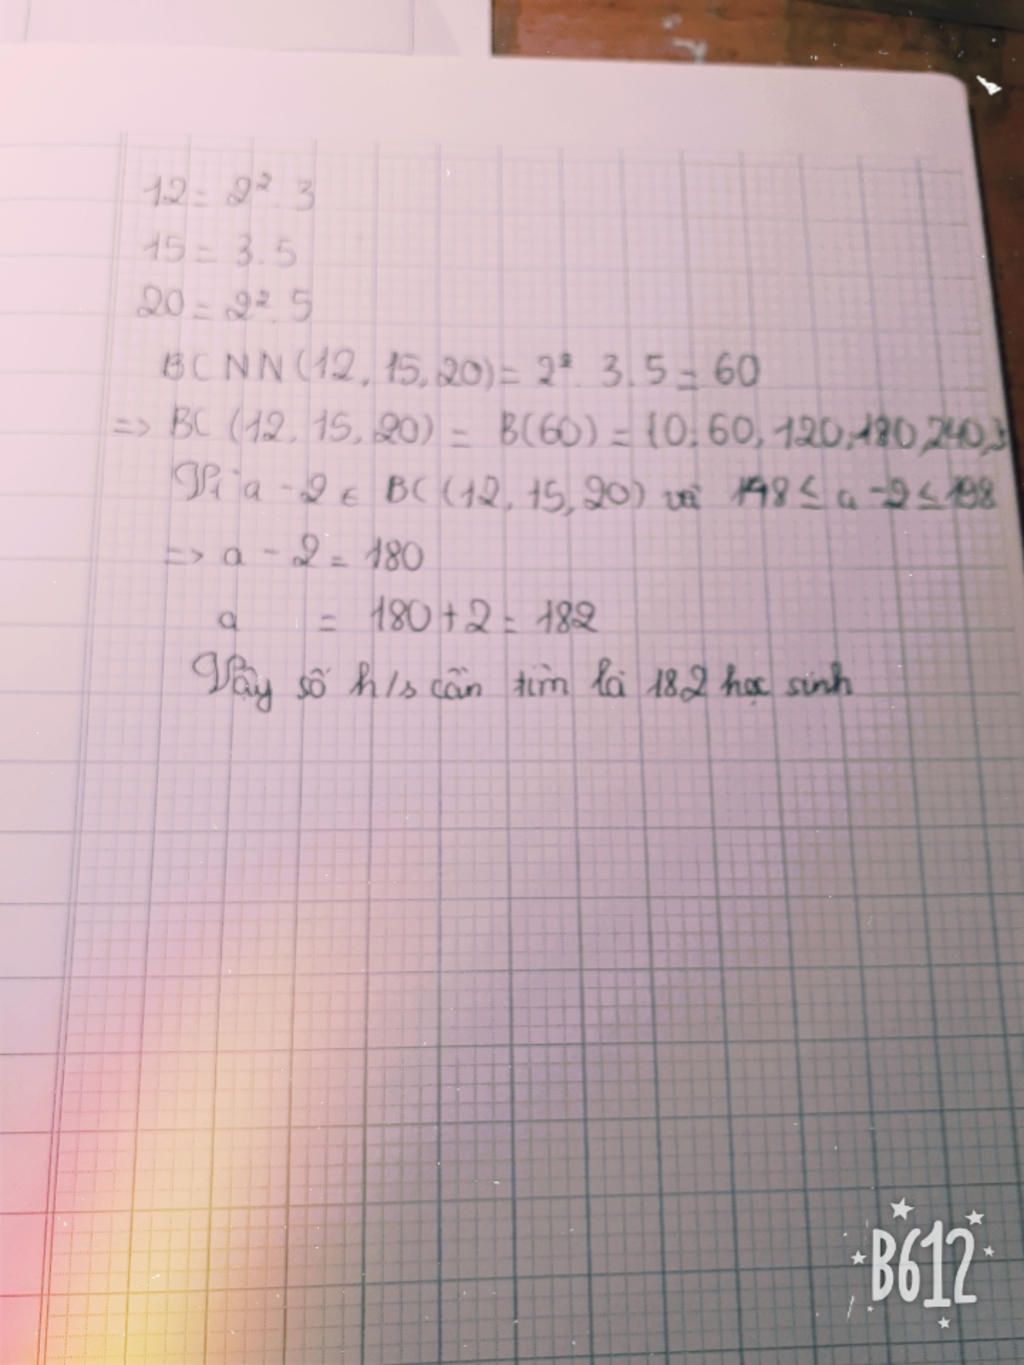 12 = 2². 3
15 = 3.5
20 = 2². 5
BCNN (12, 15, 20) = 2². 3.5 = 60
=> BC (12, 15, 20) = B(60) = {0; 60, 120; 180, 240,
Vì a - 2 ∈ BC (12, 15, 20) và 148 ≤ a - 2 ≤ 198
=> a - 2 = 180
a = 180 + 2 = 182
Vậy số h/s cần tìm là 182 học sinh
B612